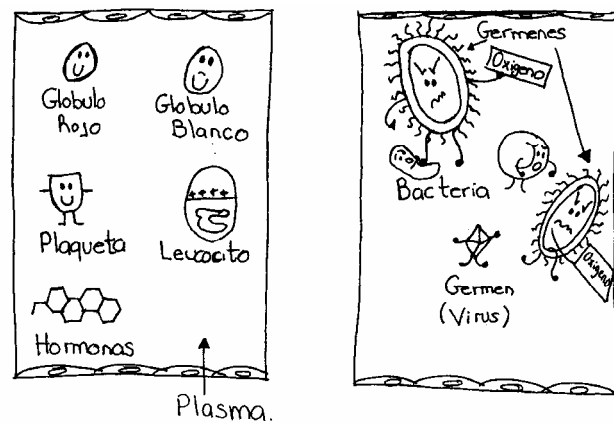 Globulo
Rojo
Globulo
Blanco
Plaqueta
Leucocito
Hormonas
Plasma.
Germenes
Oxigeno
Bacteria
Germen
(Virus)
Oxigeno